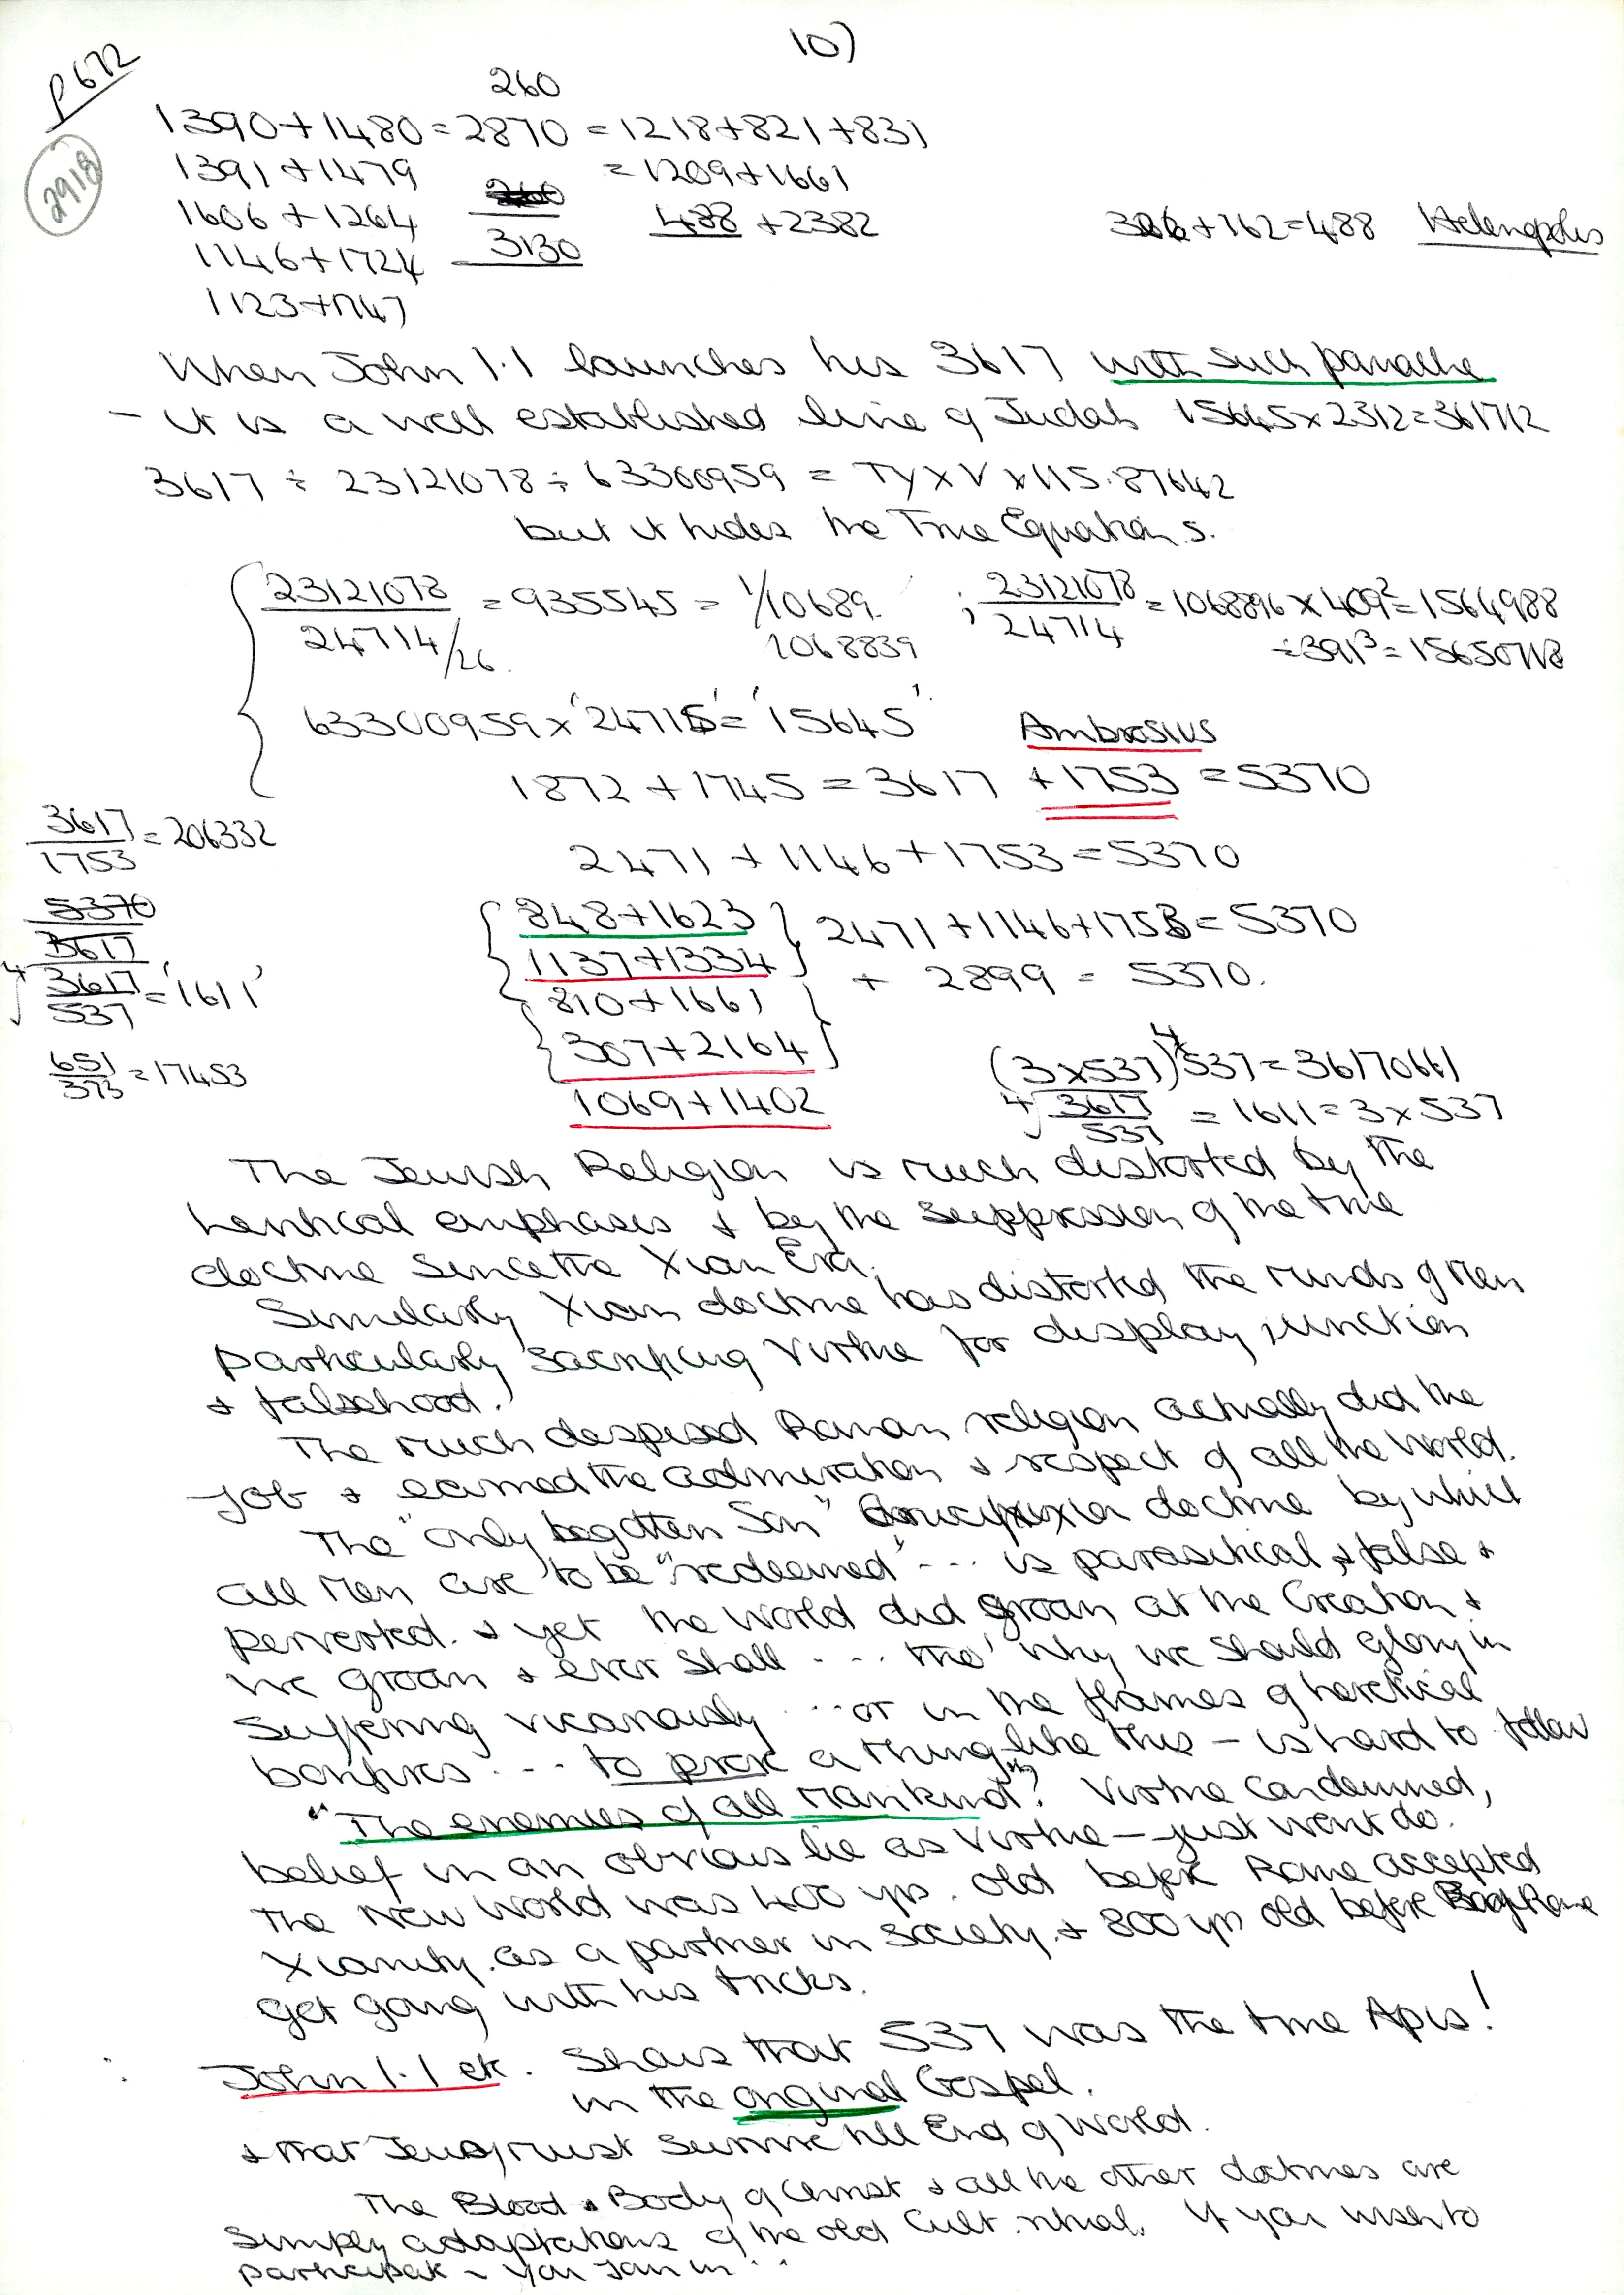 10)
p 672
2918
260
1390+1480=2870 =1218+821+831
1391+1479 =1209+1661
1606+1264 488+2382 326+162=488 Helenopolis
1146+1724 3130
1123+1747
When John 1.1 launches his 3617 with such panache
- it is a well established line of Judah 15645x2312=361712
3617 ÷ 23121078 ÷ 63300959 = Ty x V x 115.87642
but it hides the True Equations.
23121078 / 24714/26. = 935545 = 1/10689. ; 23121078 / 24714 = 1068896 x 409² = 1564988
1068839 ÷391³=15650718
63300959 x '24715' = '15645' Ambrosius
1872 + 1745 = 3617 +1753 = 5370
3617/1753 = 206332
2471 + 1146 + 1753 = 5370
5370
3617
848+1623 2471+1146+1753=5370
1137+1334 + 2899 = 5370.
4√3617/537 = '1611' 810+1661
307+2164
651/373 = 17453 (3x537)⁴x537=36170661
1069+1402 4√3617/537 = 1611=3x537
The Jewish Religion is much distorted by the
heretical emphases & by the suppression of the true
doctrine since the Xian Era.
Similarly Xian doctrine has distorted the minds of men
particularly sacrificing virtue for display, unction
& falsehood.
The much despised Roman religion actually did the
job & earned the admiration & respect of all the World.
The "only begotten Son" doctrine by which
all men are to be "redeemed" --- is parasitical, & false &
perverted. & yet the World did groan at the Creation &
we groan & ever shall ... tho' why we should glory in
suffering vicariously ... or in the flames of heretical
bonfires ... to prove a thing like this - is hard to follow
"The enemies of all Mankind"? Virtue condemned,
belief in an obvious lie as Virtue - just wont do.
The New World was 400 yrs. old before Rome accepted
Xianity. as a partner in society. & 800 yrs old before Rome
get going with his tricks.
John 1.1 etc. Shows that 537 was the true Apis!
in the original Gospel.
& that Jewry must survive till End of World.
The Blood & Body of Christ & all the other doctrines are
simply adaptations of the old Cult ritual. If you wish to
participate - you join in ...